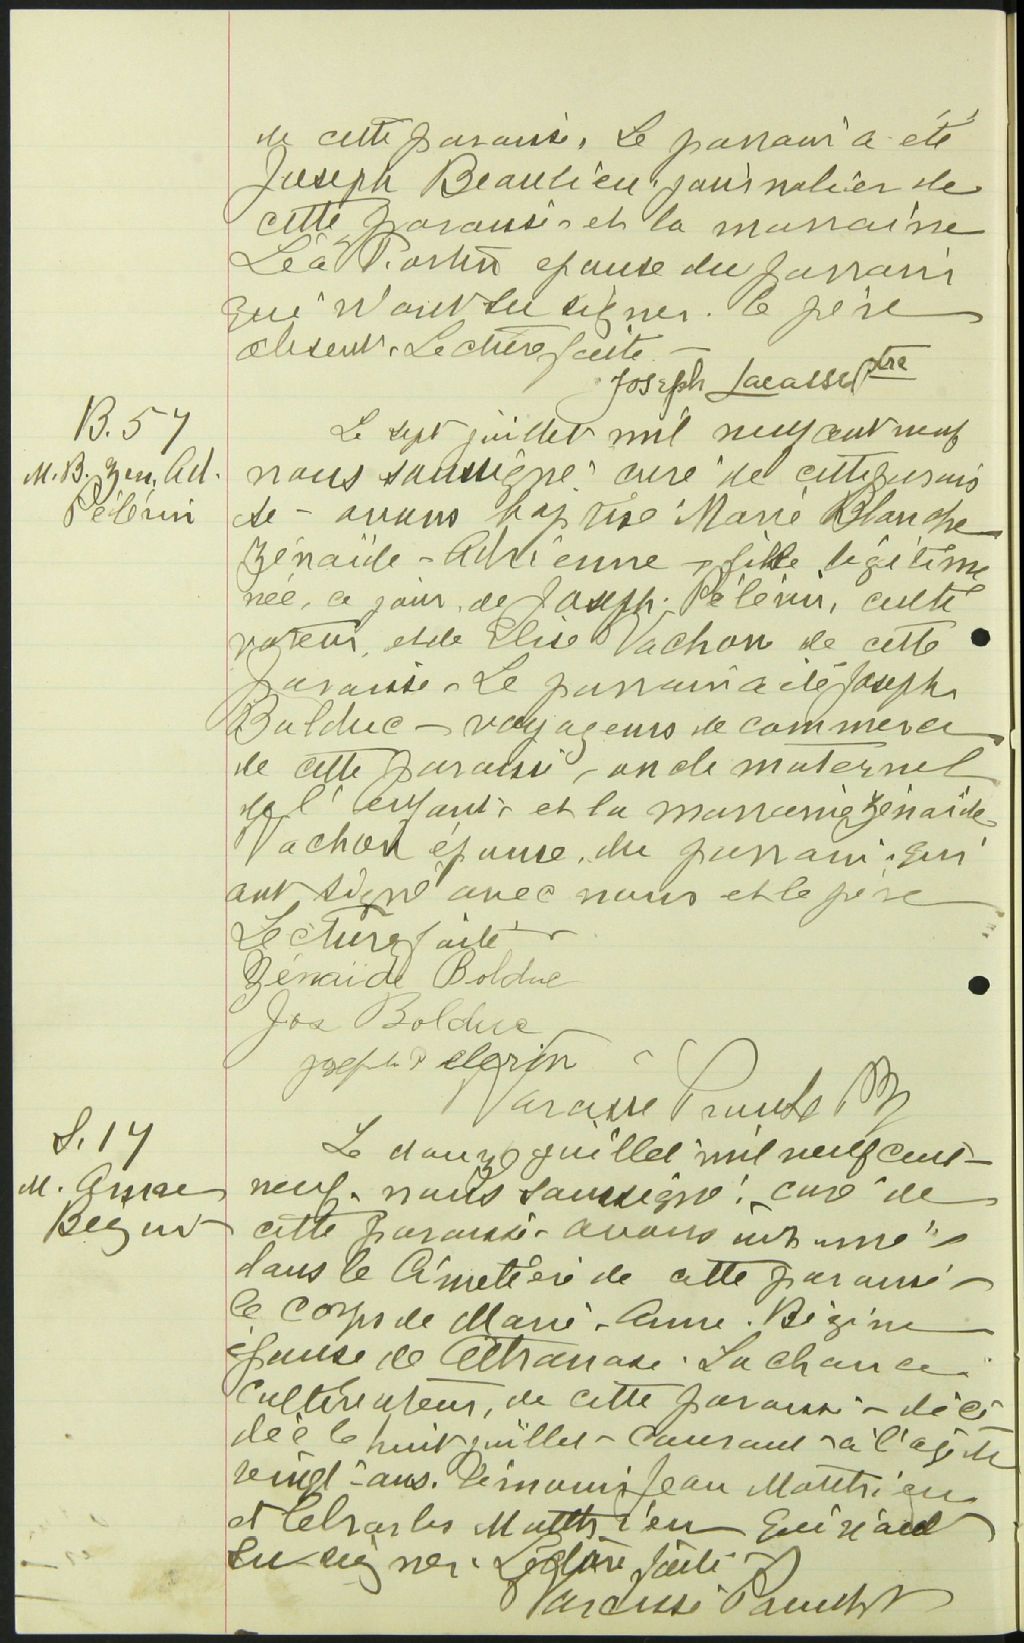 de cette paroisse. Le parrain a été
Joseph Beaulieu, journalier de
cette paroisse et la marraine
Léa épouse du parrain
qui n'ont su signer. le père
absent. Lecture faite. —
Joseph Lacasse Ptre
B. 57
M. B. Zen. Ad.
Pélérin
Le sept juillet mil neuf cent neuf
nous soussigné curé de cette parois
se - avons baptisé Marie Blanche
Zénaïde - Adrienne - fille légitime
née, ce jour, de Joseph Pélérin, culti
vateur, et de Elise Vachon de cette
paroisse. Le parrain a été Joseph
Bolduc - voyageur de commerce
de cette paroisse, oncle maternel
de l'enfant et la marraine Zénaïde
Vachon épouse du parrain qui
ont signé avec nous et le père
Lecture faite
Zénaïde Bolduc
Jos Bolduc
Joseph Pelerin
Narcisse Proulx
S. 17
M. Anne
Bégin
Le douze juillet mil neuf cent
neuf. nous soussigné, curé de
cette paroisse - avons inhumé
dans le Cimetière de cette paroisse -
le corps de Marie - Anne. Bégin
épouse de Athanase Lachance
cultivateur, de cette paroisse - décé
dée le huit juillet - courant - à l'age de
vingt - ans. Témoins Jean Matthieu
et Charles Matthieu qui n'ont
su signer. Lecture faite
Narcisse Proulx